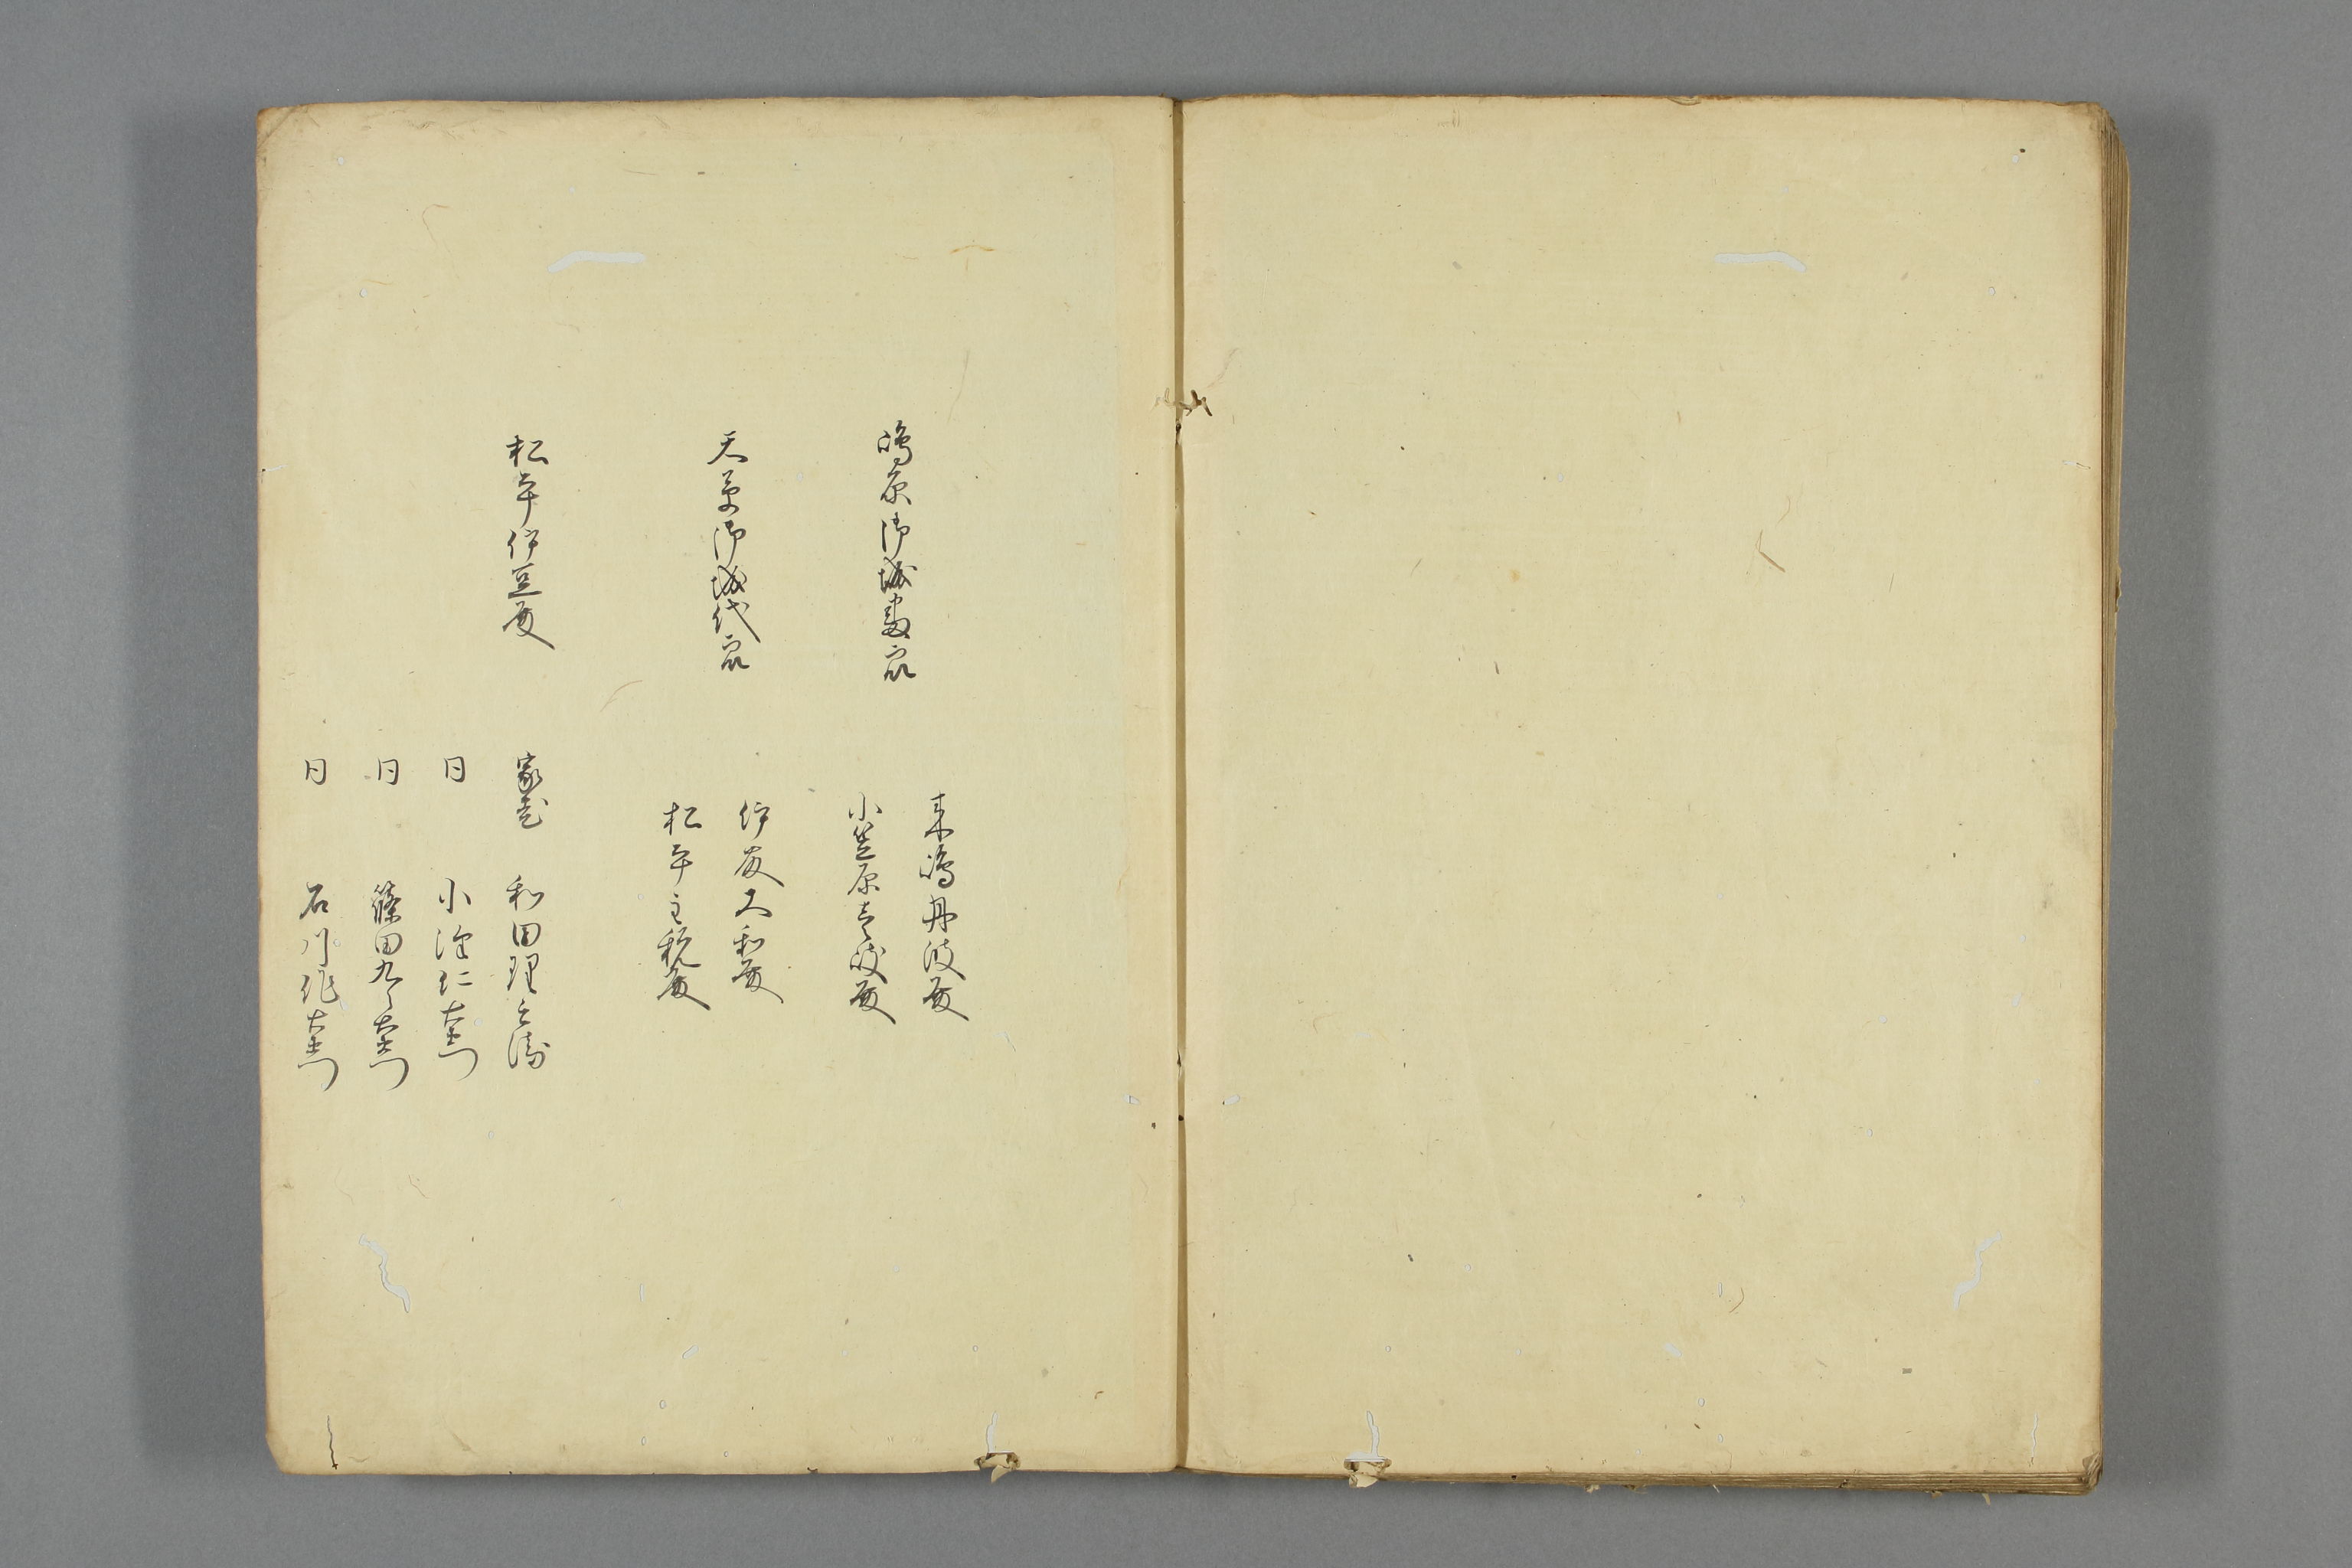 嶋原御城番衆
来嶋丹波殿
小笠原壱岐殿
天草御城代衆
伊奈大和殿
松平主税殿
松平伊豆殿
家老 和田理兵衛
同 小沢仁右衛門
同 篠田九郎右衛門
同 石川作右衛門